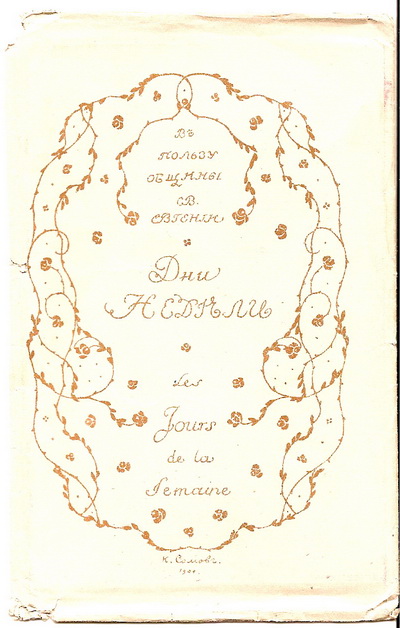 Въ
пользу
общины
св.
Евгенiи
Дни
Недѣли
Les
Jours
de la
Semaine
К. Сомовъ.